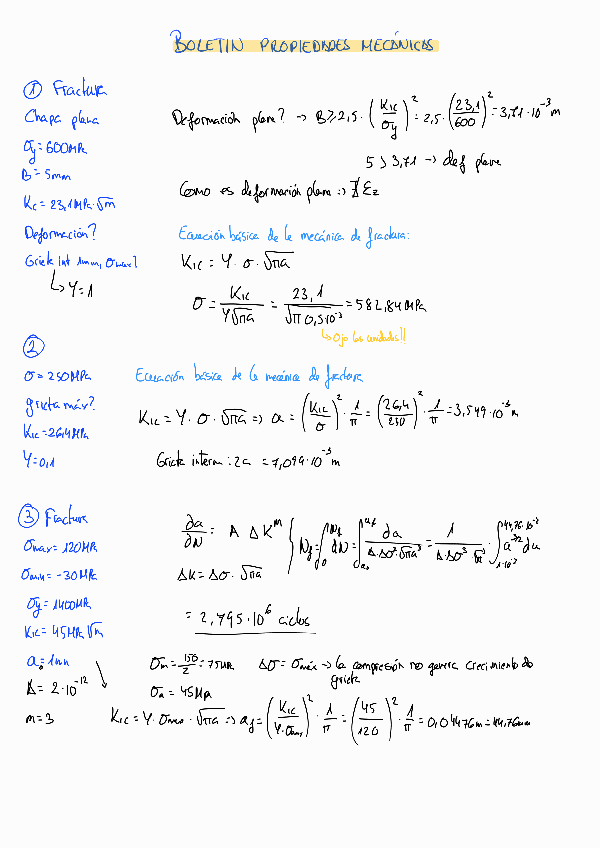 BOLETIN PROPIEDADES MECÁNICAS
① Fractura
Chapa plana
σy = 600MPa
B = 5mm
Kc = 23,1 MPa·√m
Deformación?
Grieta int 1mm, σmax?
↳ Y = 1
Deformación plana? → B ≥ 2,5 · (K1c/σy)² = 2,5 · (23,1/600)² = 3,71·10⁻³ m
5 > 3,71 → def plana
Como es deformación plana :) ∄ εz
Ecuación básica de la mecánica de fractura:
K1c = Y · σ · √πa
σ = K1c/(Y√πa) = 23,1/√(π 0,5·10⁻³) = 582,84 MPa
↳ Ojo las unidades!!
②
σ = 250MPa
grieta máx?
K1c = 26,4MPa
Y = 0,1
Ecuación básica de la mecánica de fractura
K1c = Y · σ · √πa => a = (K1c/σ)² · 1/π = (26,4/250)² · 1/π = 3,549·10⁻³ m
Grieta interna: 2a = 7,099·10⁻³ m
③ Fractura
σmax = 120MPa
σmin = -30MPa
σy = 1400MPa
K1c = 45MPa √m
a₀ = 1mm
A = 2·10⁻¹²
m = 3
∂a/∂N = A ΔK^m { Nf = ∫₀^Nf dN = ∫a₀^af da/(A·Δσ³·√πa³) = 1/(A·Δσ³·√π³) · ∫1·10⁻³^44,76·10⁻³ a^-3/2 da
ΔK = Δσ · √πa
= 2,795·10⁶ ciclos
σm = 150/2 = 75MPa
Δσ = σmáx → la compresión no genera crecimiento de grieta
σa = 45MPa
K1c = Y · σmax · √πa => af = (K1c/Y·σmax)² · 1/π = (45/120)² · 1/π = 0,04476m = 44,76mm